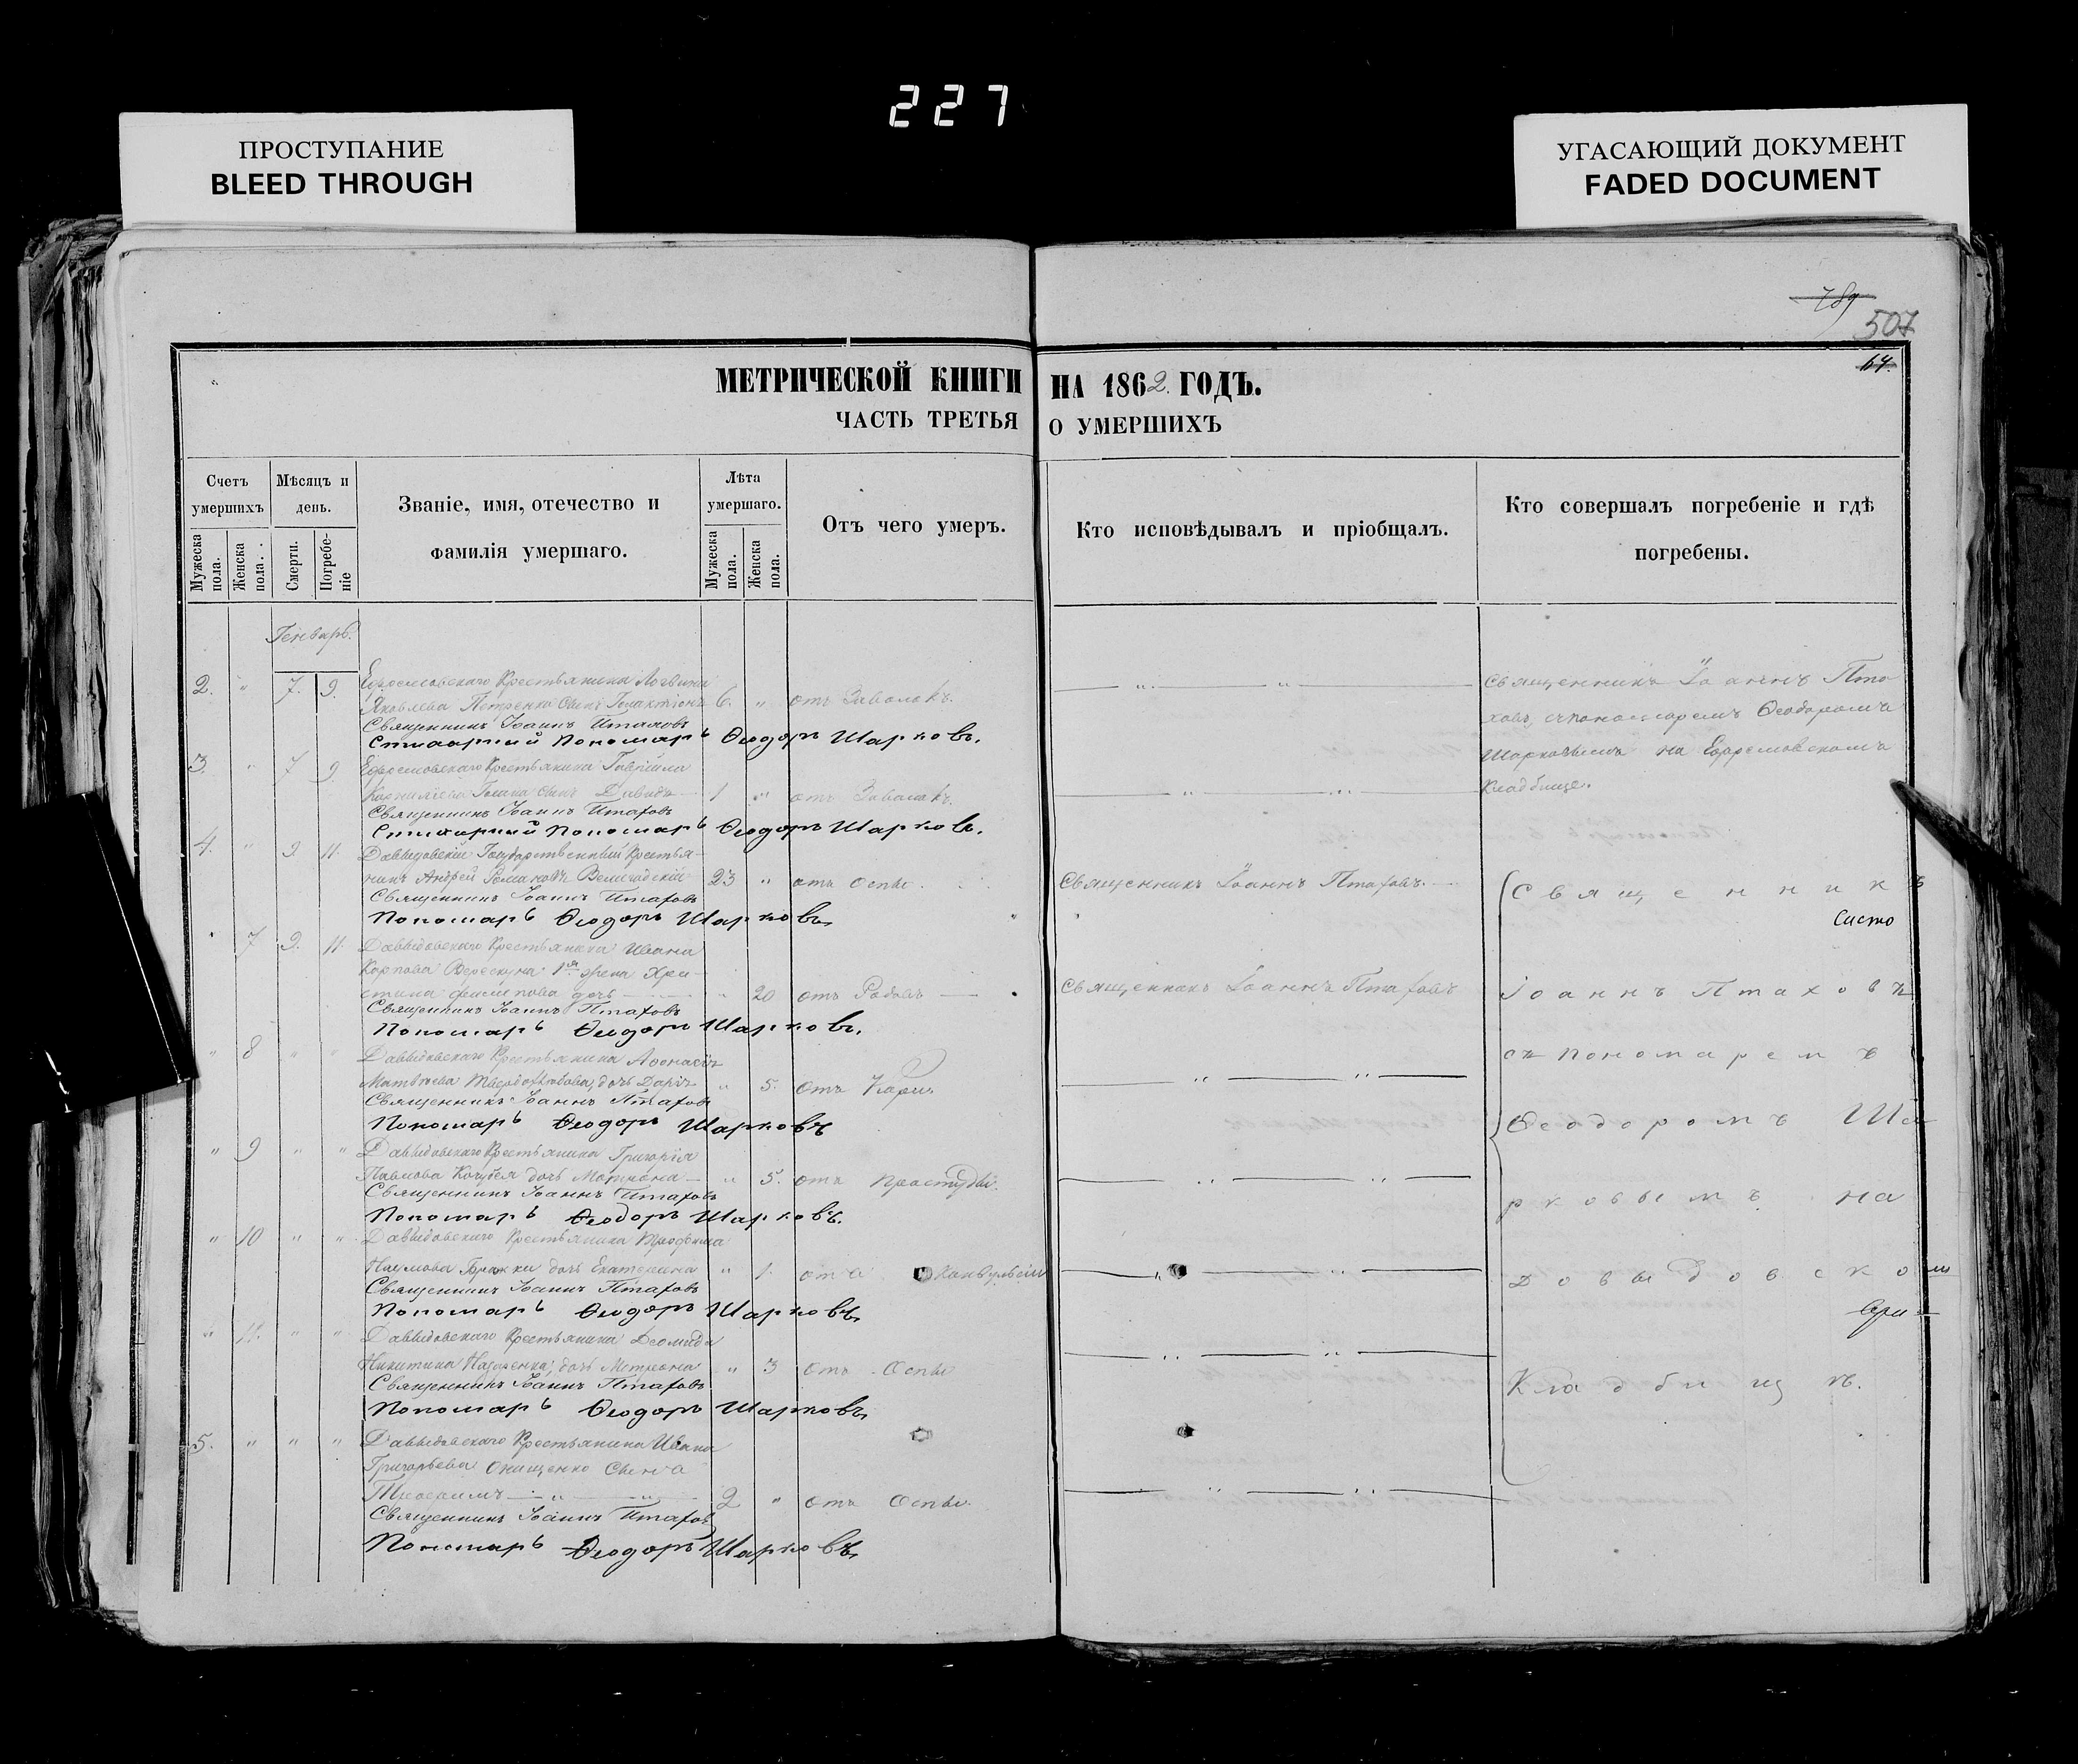 227
ПРОСТУПАНИЕ
BLEED THROUGH
УГАСАЮЩИЙ ДОКУМЕНТ
FADED DOCUMENT
789
507
64.
МЕТРИЧЕСКОЙ КНИГИ НА 1862. ГОДЪ.
ЧАСТЬ ТРЕТЬЯ О УМЕРШИХЪ
Счетъ умершихъ
Мужеска пола.
Женска пола. . .
Мѣсяцъ и день.
Смерти.
Погребеніе
Званіе, имя, отечество и фамилія умершаго.
Лѣта умершаго.
Мужеска пола.
Женска пола.
Отъ чего умеръ.
Кто исповѣдывалъ и пріобщалъ.
Кто совершалъ погребеніе и гдѣ погребены.
Генварь.
2. " 7. 9. Ефремовскаго Крестьянина
Яковлева Петренка Сынъ 6. "
Священникъ Іоаннъ Птаховъ
Стихарный Пономарь Ѳеодоръ Шарковъ.
Священникъ Іоаннъ Пта
ховъ, съ пономаремъ Ѳеодоромъ
Шарковымъ на Ефремовскомъ
Кладбище.
3. " 7 9. Ефремовскаго Крестьянина Гавріила
сынъ Давидъ 1 "
Священникъ Іоаннъ Птаховъ
Стихарный Пономарь Ѳеодоръ Шарковъ.
4. " 9 11. Давыдовскій Государственный Крестья-
нинъ Андрей Романовъ 23 " отъ Оспы.
Священникъ Іоаннъ Птаховъ.
Священникъ Іоаннъ Птаховъ
Пономарь Ѳеодоръ Шарковъ
" 7 9. 11. Давыдовскаго Крестьянина Ивана
Карпова 1я жена Хри-
стина дочь " 20 отъ Родовъ
Священникъ Іоаннъ Птаховъ
Священникъ Іоаннъ Птаховъ
Пономарь Ѳеодоръ Шарковъ.
" 8 " " Давыдовскаго Крестьянина
Матвѣева дочь Дарія " 5. отъ Кори
Священникъ Іоаннъ Птаховъ
Пономарь Ѳеодоръ Шарковъ
" 9 " " Давыдовскаго Крестьянина Григорія
Павлова Кочубея дочь Матрона " 5. отъ простуды.
Священникъ Іоаннъ Птаховъ
Пономарь Ѳеодоръ Шарковъ.
" 10 " " Давыдовскаго Крестьянина Трофима
Наумова дочь Екатерина " 1. отъ Конвульсіи
Священникъ Іоаннъ Птаховъ
Пономарь Ѳеодоръ Шарковъ
" 11. " " Давыдовскаго Крестьянина
Никитина Назаренка, дочь Матрона " 3 отъ Оспы
Священникъ Іоаннъ Птаховъ
Пономарь Ѳеодоръ Шарковъ
5. " " " Давыдовскаго Крестьянина Ивана
Григорьева Онищенко Сынъ
2 " отъ Оспы.
Священникъ Іоаннъ Птаховъ
Пономарь Ѳеодоръ Шарковъ
Священникъ
Іоаннъ Птаховъ
съ пономаремъ
Ѳеодоромъ Ша
рковымъ на
Довыдовском
Кладбищѣ.